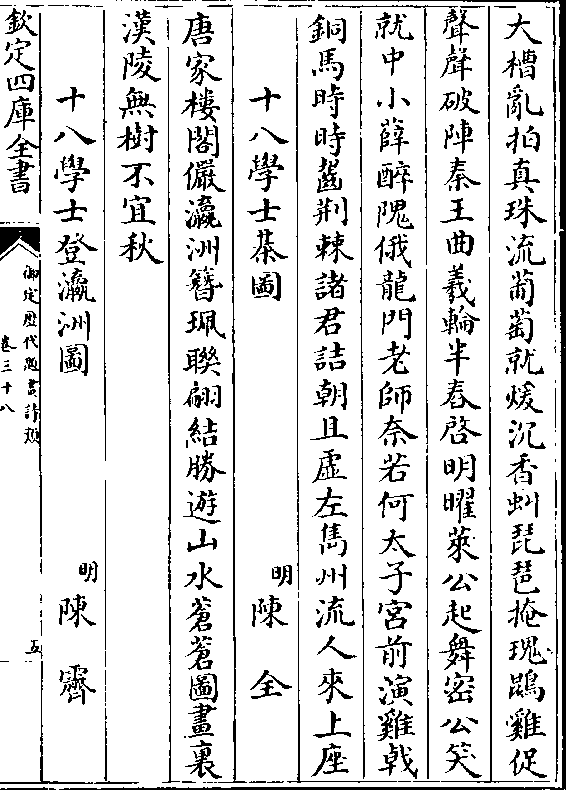 大槽亂拍真珠流葡萄就煖沉香虬琵琶掩瑰鵾雞促
聲聲破陣秦王曲羲輪半舂啓明曜萊公起舞密公笑
就中小薛醉隗俄龍門老師奈若何太子宮前演雞戟
銅馬時時齧荆棘諸君詰朝且虚左雋州流人來上座
十八學士棊圖 明 陳 全
唐家樓閣儼瀛洲簪珮聯翩結勝遊山水蒼蒼圖畫裏
漢陵無樹不宜秋
十八學士登瀛洲圖 明 陳 霽
欽定四庫全書
御定歴代題畫詩類
卷三十八
五